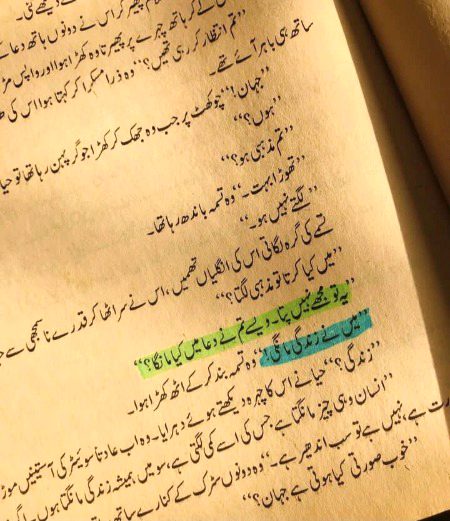 کر کے ہاتھ چہرے پر پھیرتا وہ کھڑا ہوا اور واپس مڑ
”تم انتظار کر رہی تھیں؟“ وہ ذرا مسکرا کر کہتا ہوا اس کی
ساتھ ہی باہر آئے تھے۔
”جہان!“ چوکھٹ پر جب وہ جھک کر کھڑا جوگر پہن رہا تھا تو حیا
”ہوں؟“
”تم مذہبی ہو؟“
”تھوڑا بہت۔“ وہ تسمہ باندھ رہا تھا۔
”لگتے نہیں ہو۔“
تسمے کی گرہ لگاتی اس کی انگلیاں تھمیں، اس نے سر اٹھا کر قدرے نا سمجھی سے
”میں کیا کرتا تو مذہبی لگتا؟“
”یہ تو مجھے نہیں پتا۔ ویسے تم نے دعا میں کیا مانگا؟“
”میں نے زندگی مانگی!“ وہ تسمہ بند کر کے اٹھ کھڑا ہوا۔
”زندگی؟“ حیا نے اس کا چہرہ دیکھتے ہوئے دہرایا۔ وہ اب عادتاً سویٹر کی آستینیں موڑ
”انسان وہی چیز مانگتا ہے، جس کی اسے کمی لگتی ہے، سو میں ہمیشہ زندگی مانگتا ہوں۔
ہے، نہیں ہے تو سب اندھیر ہے۔“ وہ دونوں سڑک کے کنارے ساتھ
”خوب صورتی کیا ہوتی ہے جہان؟“